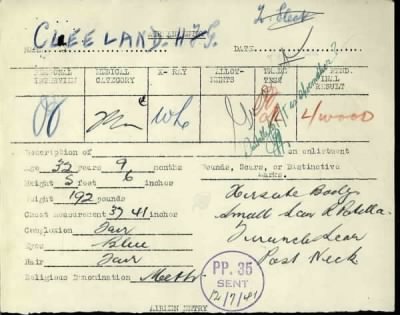 CLEELAND. H.J.
DATE
PERSONAL INTERVIEW MEDICAL CATEGORY X-RAY ALLOT-MENTS TRADE TEST FINAL RESULT
WhC 4/wood
Description of on enlistment
Age 32 years 9 months Wounds, Scars, or Distinctive Marks.
Height 5 feet 6 inches
Weight 192 pounds Hirsute Body
Chest measurement 37 41 inches Small Scar L Patella
Complexion Fair Furuncle Scar
Eyes Blue Post Neck
Hair Fair
Religious Denomination Meth
PP. 35
SENT
12/7/41
AIRMEN ENTRY